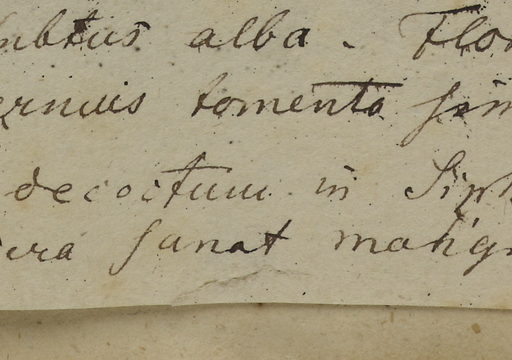 subtus alba. Flo
ernuis tomento sim
decoctum in Siph
era sanat malign